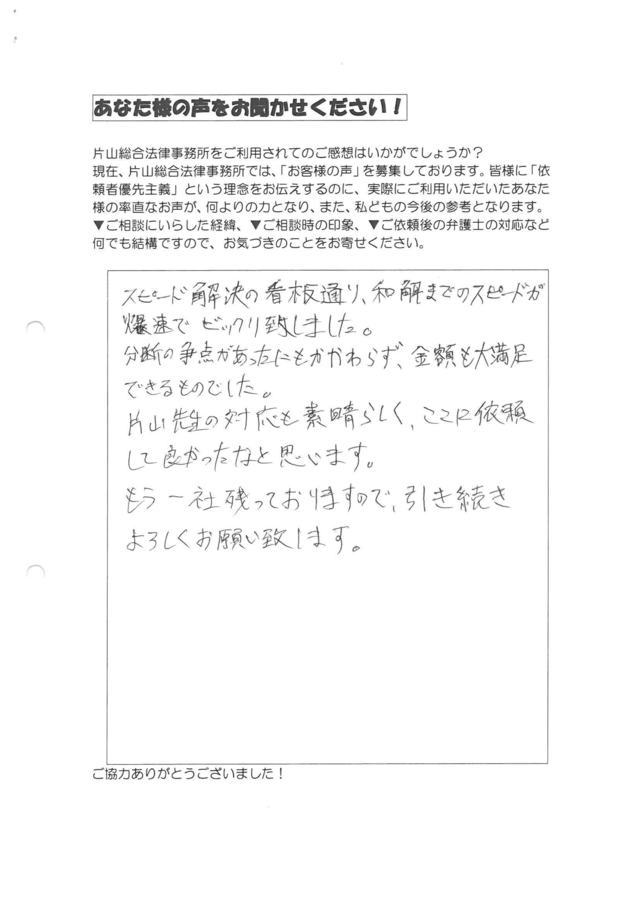 あなた様の声をお聞かせください！
片山総合法律事務所をご利用されてのご感想はいかがでしょうか？
現在、片山総合法律事務所では、「お客様の声」を募集しております。皆様に「依
頼者優先主義」という理念をお伝えするのに、実際にご利用いただいたあなた
様の率直なお声が、何よりの力となり、また、私どもの今後の参考となります。
▼ご相談にいらした経緯、▼ご相談時の印象、▼ご依頼後の弁護士の対応など
何でも結構ですので、お気づきのことをお寄せください。
スピード解決の看板通り、和解までのスピードが
爆速でビックリ致しました。
分断の争点があったにもかかわらず、金額も大満足
できるものでした。
片山先生の対応も素晴らしく、ここに依頼
して良かったなと思います。
もう一社残っておりますので、引き続き
よろしくお願い致します。
ご協力ありがとうございました！